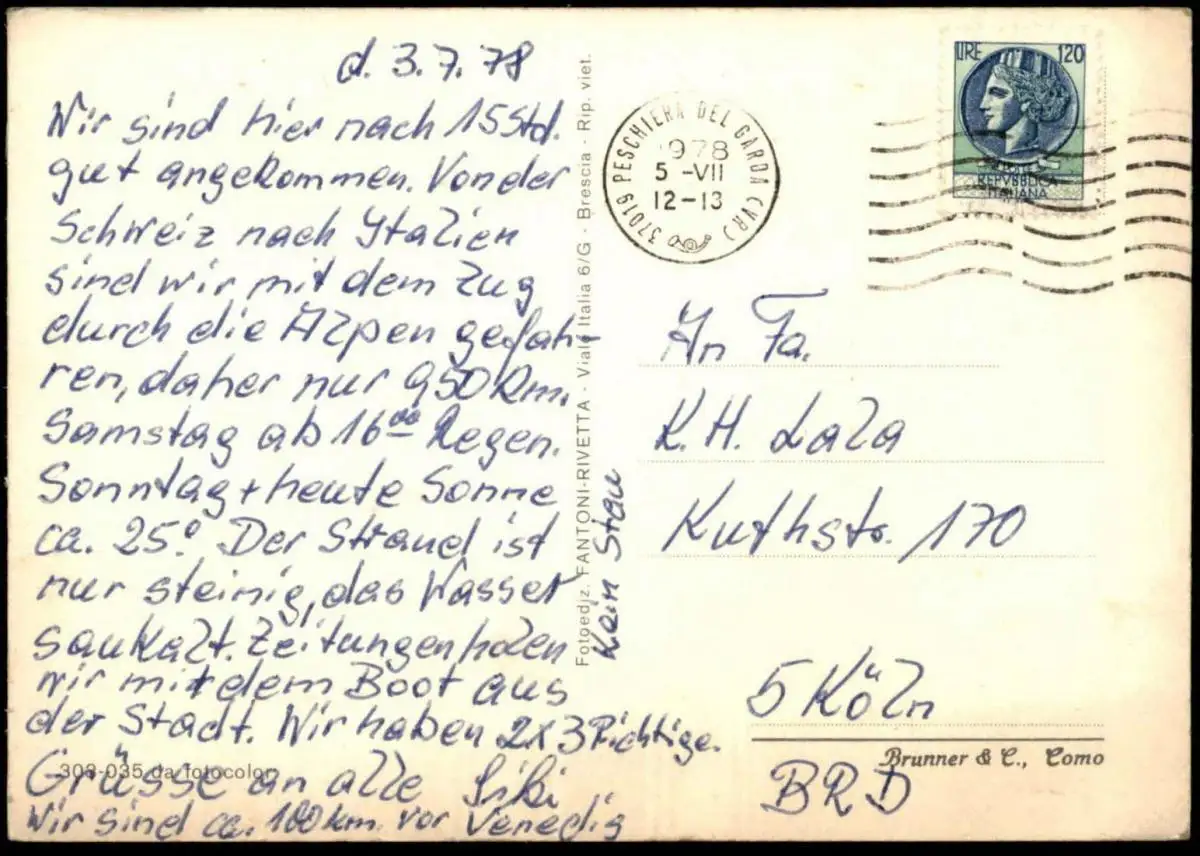 d. 3.7.78
Wir sind hier nach 15 Std.
gut angekommen. Von der
Schweiz nach Italien
sind wir mit dem Zug
durch die Alpen gefah-
ren, daher nur 950 km.
Samstag ab 16⁰⁰ Regen.
Sonntag + heute Sonne
ca. 25°. Der Strand ist
nur steinig, das Wasser
saukalt. Zeitungen holen
wir mit dem Boot aus
der Stadt. Wir haben 2x3 Richtige.
Grüsse an alle Sibi
Wir sind ca. 100 km. vor Venedig
Kein Stau
303-035 da fotocolor
Fotoediz. FANTONI-RIVETTA - Viale Italia 6/G - Brescia - Rip. viet.
37019 PESCHIERA DEL GARDA (VR)
1978
5 -VII
12-13
LIRE 120
REPVBBLICA
ITALIANA
An Fa.
K.H. Lala
Kuthstr. 170
5 Köln
Brunner & C., Como
BRD